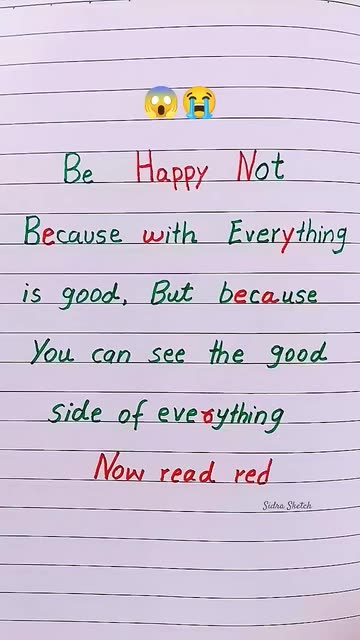 😱😭
Be Happy Not
Because with Everything
is good, But because
You can see the good
side of everything
Now read red
Sidra Sketch